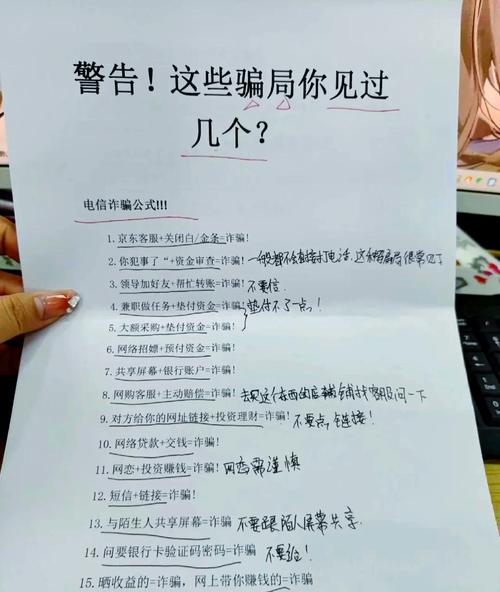 警告！这些骗局你见过
几个？
电信诈骗公式!!!
1. 京东客服+关闭白/金条=诈骗!
2. 你犯事了“+资金审查=诈骗! 一般都不会直接打电话，这种骗局很常见了
3. 领导加好友+帮忙转账=诈骗! 不要信.
4. 兼职做任务+垫付资金=诈骗! 垫付不了一点!
5. 大额采购+垫付资金=诈骗!
6. 网络招嫖+预付资金=诈骗!
7. 共享屏幕+银行账户=诈骗!
8. 网购客服+主动赔偿=诈骗! 去买这个东西的店铺找客服问一下
9. 对方给你的网址链接+投资理财=诈骗! 不要点链接!
10. 网络贷款+交钱=诈骗!
11. 网恋+投资赚钱=诈骗! 网恋需谨慎
12. 短信+链接=诈骗!
13. 与陌生人共享屏幕=诈骗 不要跟陌人屏幕共享.
14. 问要银行卡验证码密码=诈骗 不要给!
15. 晒收益的=诈骗，网上带你赚钱的=诈骗